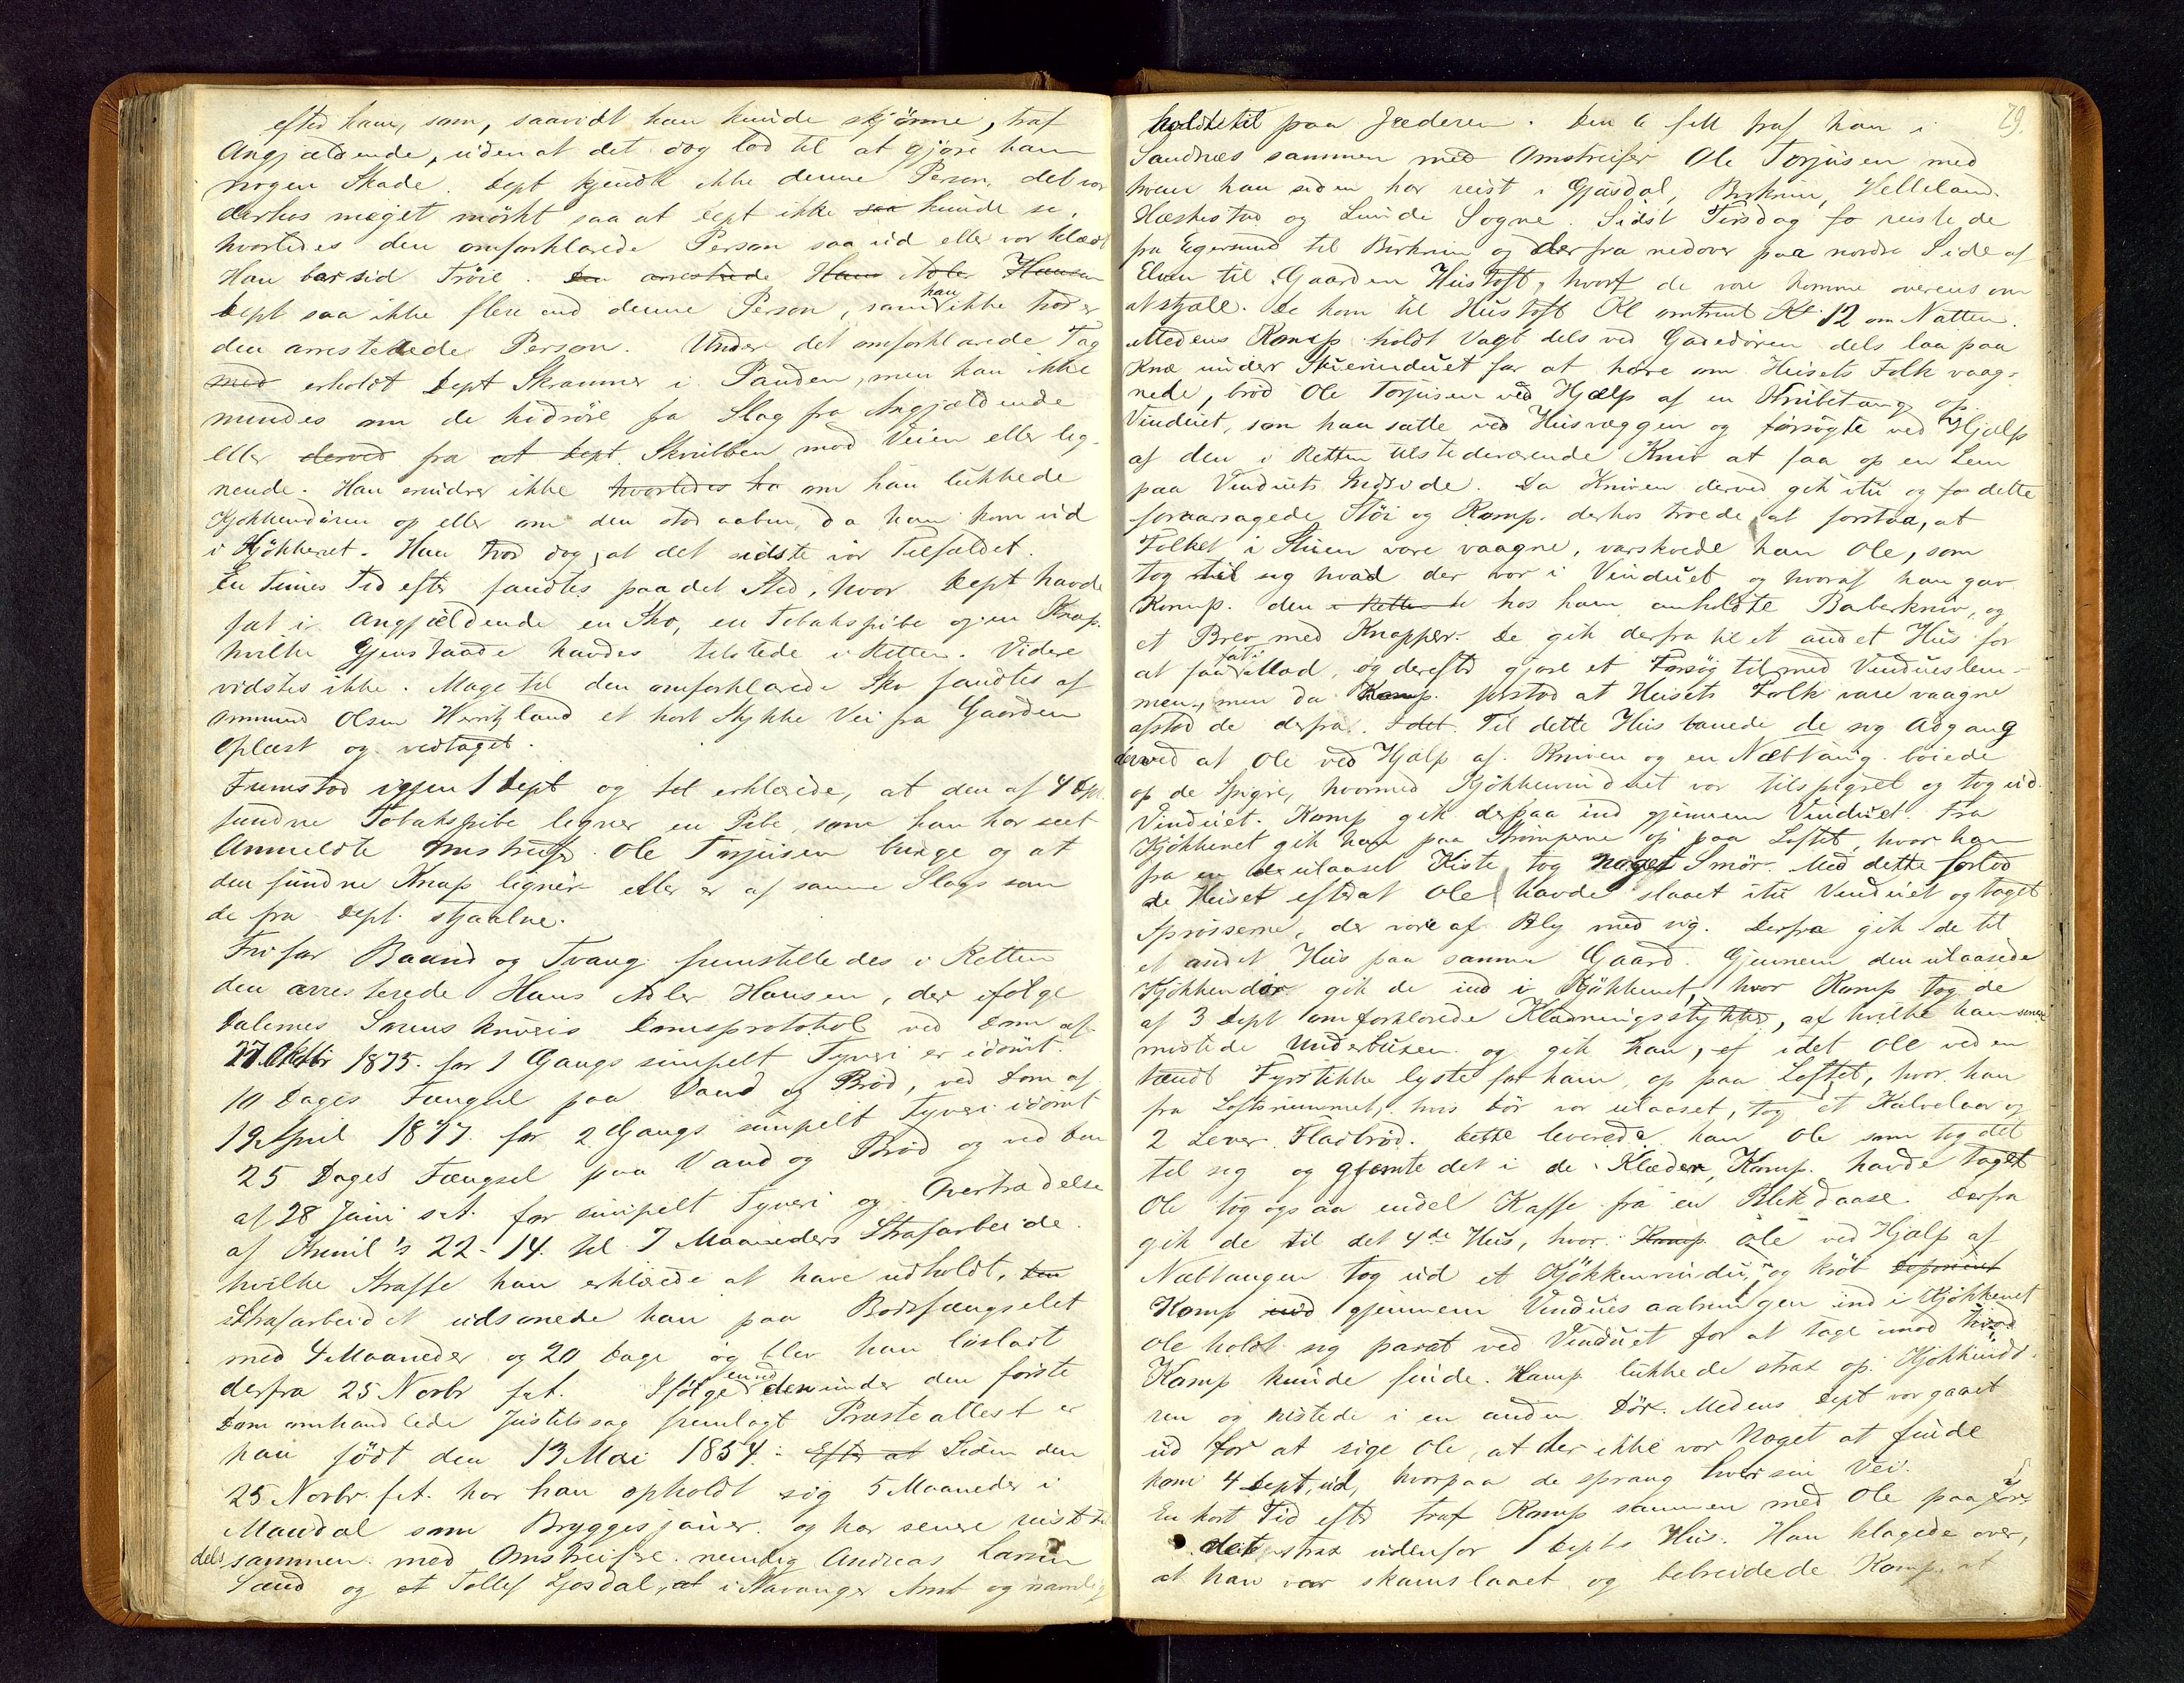 efter ham, som, saavidt han kunde skjönne, traf
Angjældende, uden at det dog lod til at gjöre ham
nogen Skade. Dept kjendte ikke denne Person, det var
derhos meget mörkt saa at Dept ikke saa kunde se,
hvorledes den omforklarede Person saa ud eller var klædt
Han bar sid Tröie. Den arresterede Hans Adler Hansen
Dept saa ikke flere end denne Person, som han ikke tror er
den arresterede Person. Under det omforklarede Tag
med erholdt Dept Skrammer i Panden, men kan ikke
mindes om de hidröre fra Slag fra Angjældende
eller derved fra at Dept. Skrubben mod Veien eller lig-
nende. Han erindrer ikke hvorledes ha om han lukkede
Kjökkendören op eller om den stod aaben, da han kom ud
i Kjökkenet. Han tror dog, at det sidste var Tilfældet.
En Times Tid efter fandtes paa det Sted, hvor Dept havde
fat i Angjældende en Sko, en Tobakspibe og en Knap.
hvilke Gjenstande havdes tilstede i Retten. Videre
vidstes ikke. Mage til den omforklarede Sko fandtes af
Ommund Olsen et kort Stykke Vei fra Gaarden
Oplæst og vedtaget.
Fremstod igjen 1 Dept og til erklærede, at den af 4 Dpt.
fundne Tobakspibe ligner en Pibe, som han har seet
Anmeldte Omstreifer Ole Torjusen bruge og at
den fundne Knap ligner eller er af samme Slags som
de fra Dept. stjaalne.
Fri for Baand og Tvang fremstilledes i Retten
den arresterede Hans Adler Hansen, der ifölge
Dalernes Sorenskriveris Domsprotokol ved Dom af
27. Oktbr 1875 for 1 Gangs simpelt Tyveri er idömt
10 Dages Fængsel paa Vand og Bröd, ved Dom af
19 April 1877 for 2 Gangs simpelt Tyveri idömt
25 Dages Fængsel paa Vand og Bröd og ved Dom
af 28 Juni s. A. for simpelt Tyveri og Overtrædelse
af Kriml's 22-14 til 7 Maaneders Strafarbeide.
hvilke Straffe han erklærede at have udholdt, den
Strafarbeidet udsonede han paa Bodsfængselet
med 4 Maaneder og 20 Dage og blev han lösladt
derfra 25 Novbr f. A. Ifölge den under den förste
Dom omhandlede Justitssag fremlagt Præsteattest er
han födt den 13 Mai 1854. Efter at Siden den
25 Novbr. f. A. har han opholdt sig 5 Maaneder i
Mandal som Bryggesjauer og har senere reist til
dels sammen med Omstreifere nemlig Andreas Larsen
Sand og et Tollef Gjesdal, at i Stavanger Amt og navnlig
79.
holdt til paa Jæderen. Den 6 ft traf han i
Sandnæs sammen med Omstreifer Ole Torjusen med
hvem han siden har reist i Gjæsdal, Birkrem, Helleland
Hæskestad og Lunde Sogne. Sidst Tirsdag fo reiste de
fra Egersund til Birkrem og derfra nedover paa nordre Side af
Elven til Gaarden Hustoft, hvorf de vare komne overens om
at stjæle. De kom til Hustoft Kl omtrent Kl 12 om Natten.
Medens Komp holdt Vagt dels ved Gadedören dels laa paa
Knæ under Stuevinduet for at höre om Husets Folk vaag-
nede, bröd Ole Torjusen ved Hjælp af en Knibetang op
Vinduet, som han satte ved Husvæggen og forsögte ved Hjælp
af den i Retten tilstedeværende Kniv at faa op en Lem
paa Vinduets Indside. Da Kniven derved gik itu og fo dette
foraarsagede Stöi og Komp. derhos troede at forstaa, at
Folket i Stuen vare vaagne, varskoede han Ole, som
tog til sig hvad der var i Vinduet og hvoraf han gav
Komp. den i Retten te hos ham anholdte Barberkniv, og
et Brev med Knapper. De gik derfra til et andet Hus for
at faa fat i Mad, og derefter gjöre et Forsög til med Vindueslem-
men, men da Komp. forstod at Husets Folk vare vaagne
afstod de derfra. I det Til dette Hus banede de sig Adgang
derved at Ole ved Hjælp af Kniven og en Nebtang böiede
op de Spigre, hvormed Kjökkenvinduet var tilspigret og tog ud
Vinduet. Komp gik derpaa ind gjennem Vinduet. Fra
Kjökkenet gik han paa Strömperne op paa Loftet, hvor han
fra en de ulaaset Kiste tog noget Smör. Med dette forlod
de Huset efterat Ole havde slaaet itu Vinduet og taget
Sprosserne, der vare af Bly med sig. Derfra gik de til
et andet Hus paa samme Gaard. Gjennem den ulaasede
Kjökkendör gik de ind i Kjökkenet, hvor Komp tog de
af 3 Dept omforklarede Klædningsstykker, af hvilke han senere
mistede Underbuxen og gik han, ef idet Ole ved en
tændt Fyrstikke lyste for ham, op paa Loftet, hvor han
fra Loftsrummet, hvis Dör var ulaaset, tog et Kalvelaar og
2 Lever Fladbröd. Dette leverede han Ole som tog det
til sig og gjemte det i de Klæder, Komp. havde taget
Ole tog ogsaa endel Kaffe fra en Blikdaase. Derfra
gik de til det 4de Hus, hvor Komp Ole ved Hjælp af
Nebtangen tog ud et Kjökkenvindu, og kröb Deponent
Komp ind gjennem Vinduesaabningen ind i Kjökkenet
Ole holdt sig parat ved Vinduet for at tage imod hvad
Komp kunde finde. Komp lukkede strax op Kjökkendö-
ren og ristede i en anden Dör. Medens Dept var gaaet
ud for at sige Ole, at der ikke var Noget at finde
kom 4 Dept. ud, hvorpaa de sprang hver sin Vei.
En kort Tid efter traf Komp sammen med Ole paa
det strax udenfor 1 Depts Hus. Han klagede over,
at han var skamslaaet og bebreidede Komp. at